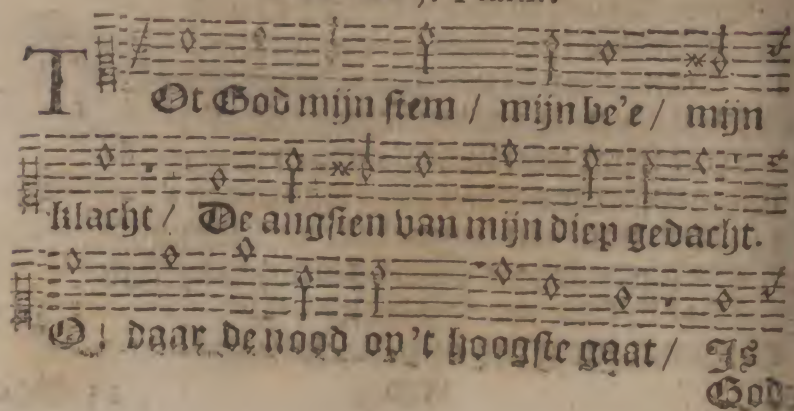 TOt God mijn stem / mijn be'e / mijn
klacht / De angsten van mijn diep gedacht.
O! daar de nood op't hoogste gaat / Is
God